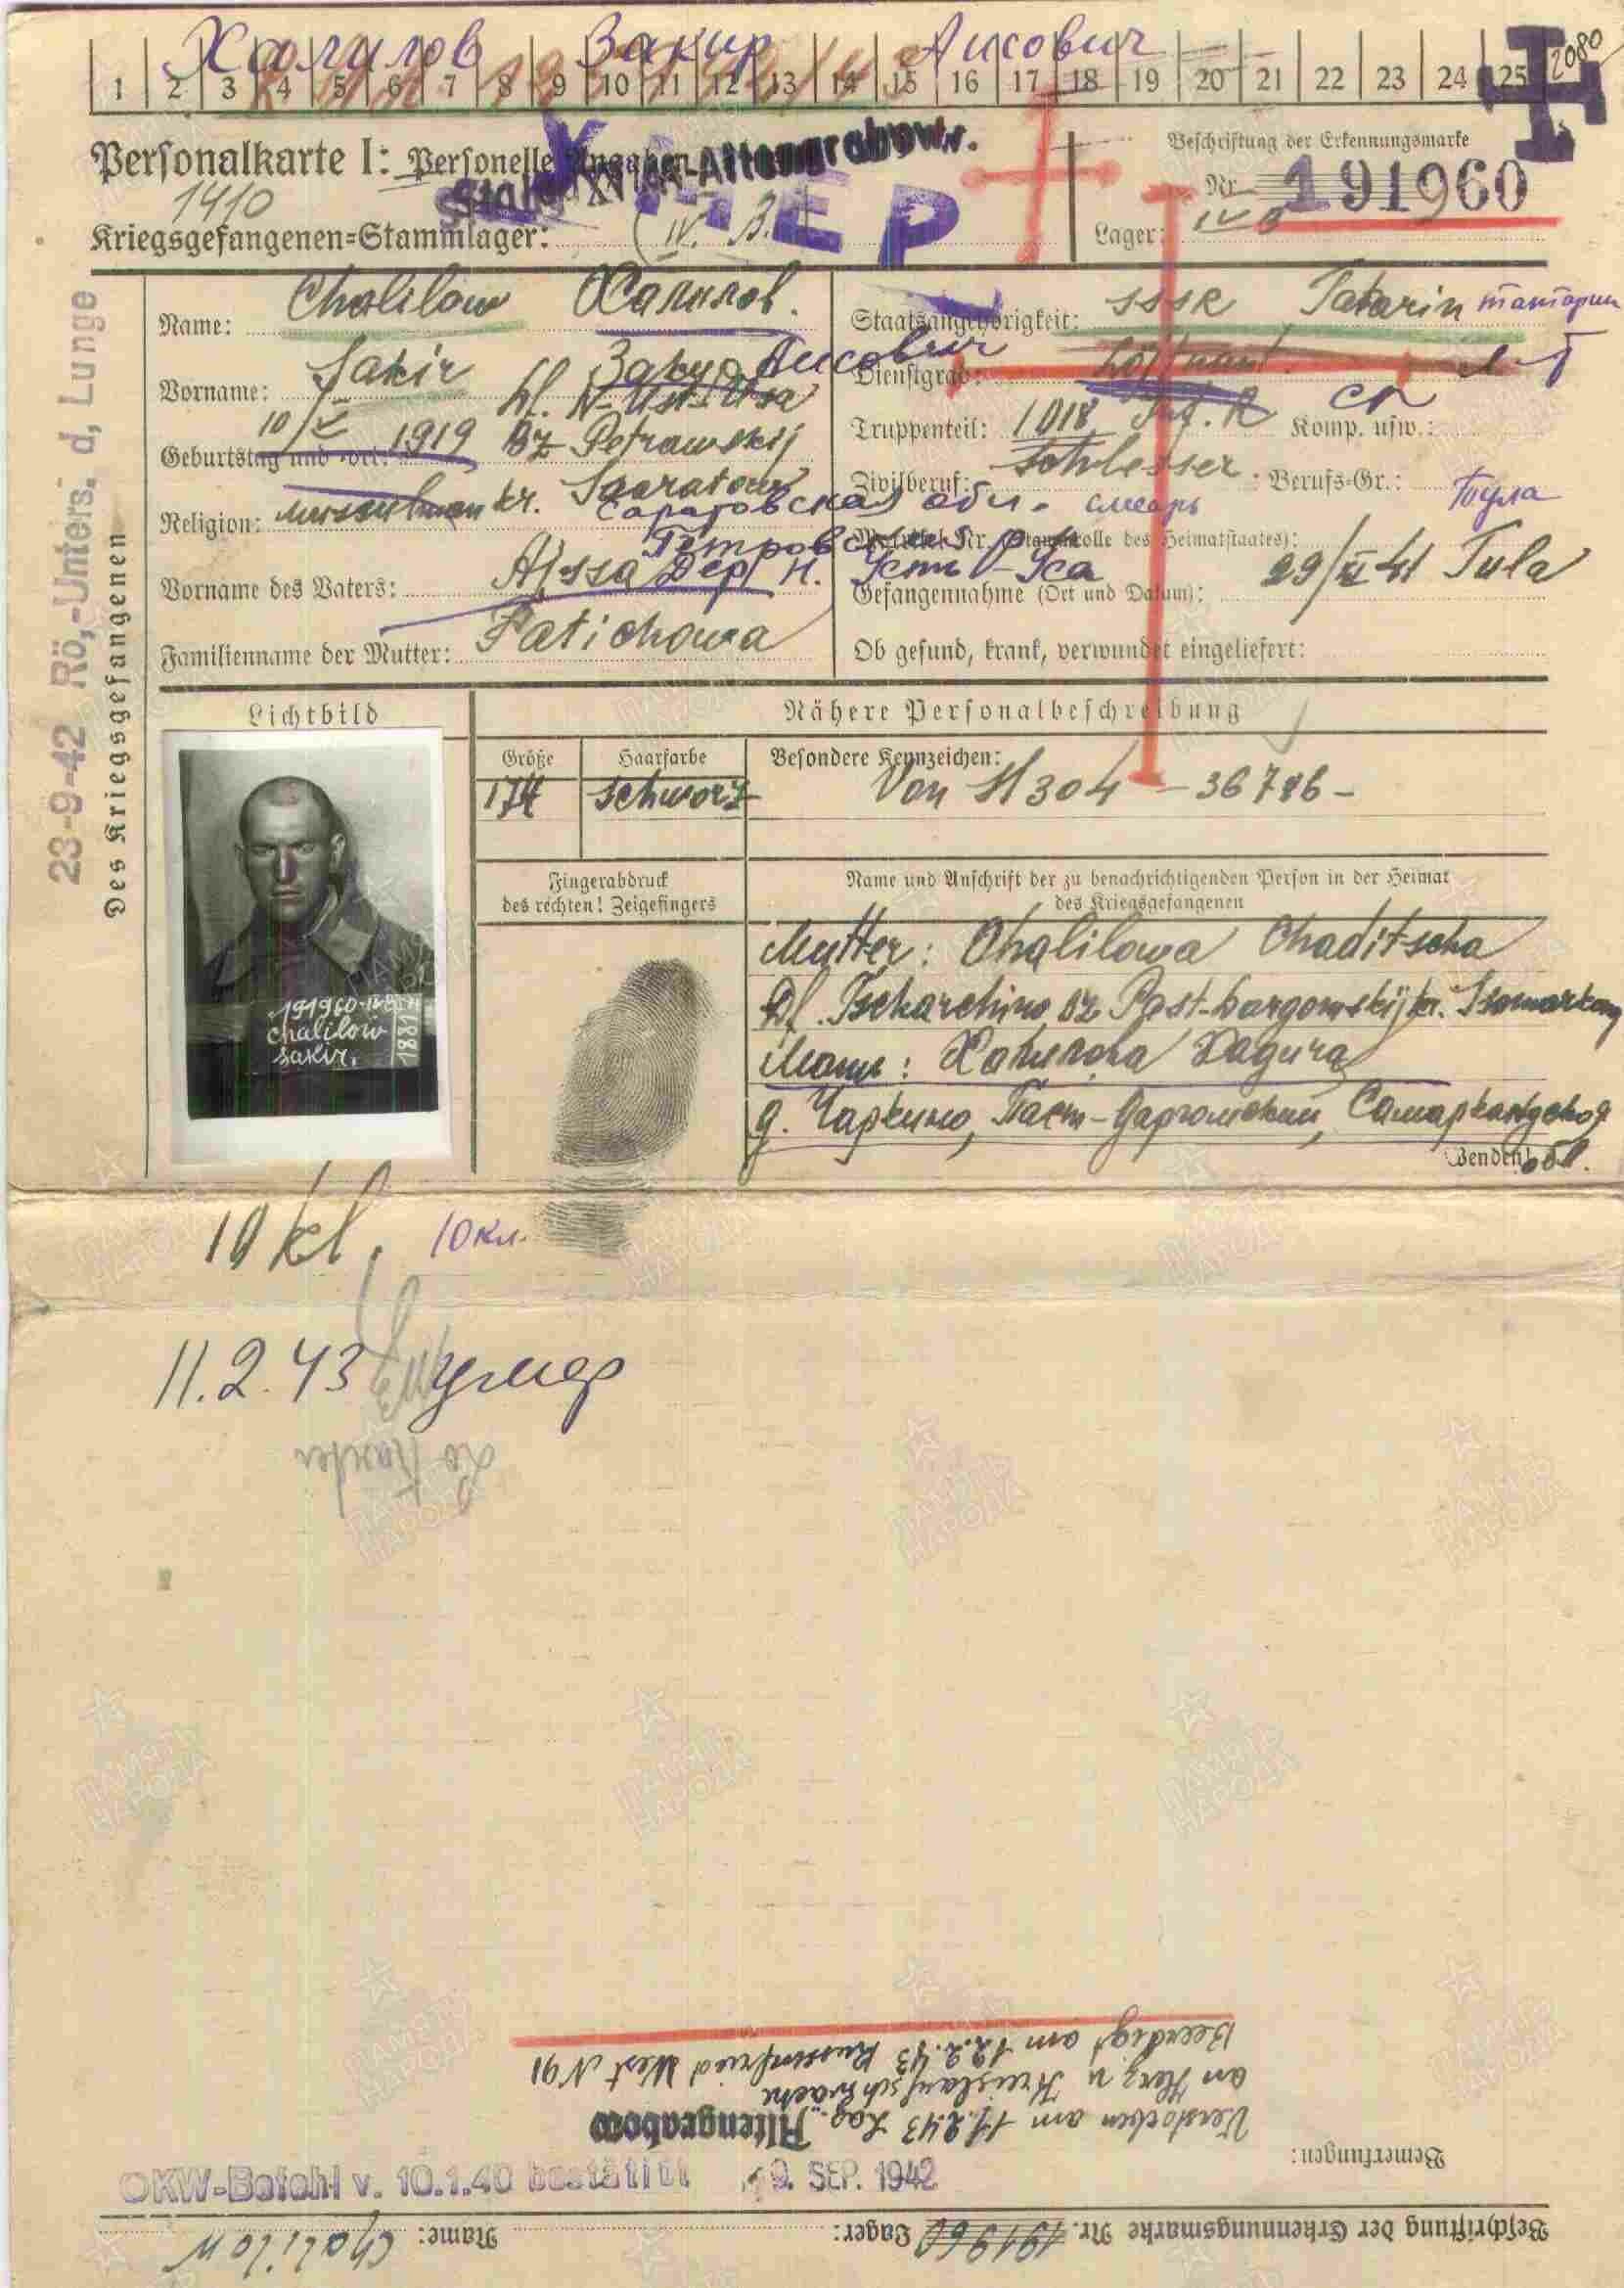 Халилов Закир Аисович
2080
1 2 3 4 5 6 7 8 9 10 11 12 13 14 15 16 17 18 19 20 21 22 23 24 25
Personalkarte I: Personelle Angaben
Altengrabow
УМЕР
Beschriftung der Erkennungsmarke
Nr. 191960
1410
Kriegsgefangenen=Stammlager: IV. B.
Lager: IV B
23-9-42 Rö,-Unters. d, Lunge
Des Kriegsgefangenen
Name: Chalilow Халилов.
Vorname: Sakir Закир Аисович
Geburtstag und -ort: 10/V 1919 N-Ust-Usa
Bz Petrowskij
Religion: musulman kr. Saaratow
Саратовская обл.
Петровский р
Vorname des Vaters: Ajssa Дер. Н. Усть-Уса
Familienname der Mutter: Fatichowa
Staatsangehörigkeit: SSSR Tatarin татарин
Dienstgrad: л-т
Truppenteil: 1018 Inf. R сп Komp. usw.:
Zivilberuf: Schlesser слесарь Berufs=Gr.: Тула
Matrikel Nr. (Stammrolle des Heimatstaates):
Gefangennahme (Ort und Datum): 29/XI 41 Tula
Ob gesund, krank, verwundet eingeliefert:
Lichtbild
Nähere Personalbeschreibung
Größe
174
Haarfarbe
schworz
Besondere Kennzeichen:
Von St 304 - 36786 -
191960-IVB
Chalilow
Sakir.
1881
Fingerabdruck
des rechten! Zeigefingers
Name und Anschrift der zu benachrichtigenden Person in der Heimat
des Kriegsgefangenen
Mutter: Chalilowa Chaditscha
Df. Tscharchino bz Past-dargomskij kr. Ssamarkang
Мать: Халилова Хадича
д. Чархино, Паст-Даргомский, Самаркандской
обл.
Wenden!
10 kl. 10 кл.
11.2.43 умер
Beerdigt am 12.2.43 Russenfried West N 91
an Herz u Kreislaufschwäche
Verstorben am 11.2.43 Lag. Altengrabow
Bemerkungen:
OKW-Befehl v. 10.1.40 bestätigt 9. SEP. 1942
Beschriftung der Erkennungsmarke Nr. 191960 Lager: Name: Chalilow
ПАМЯТЬ НАРОДА